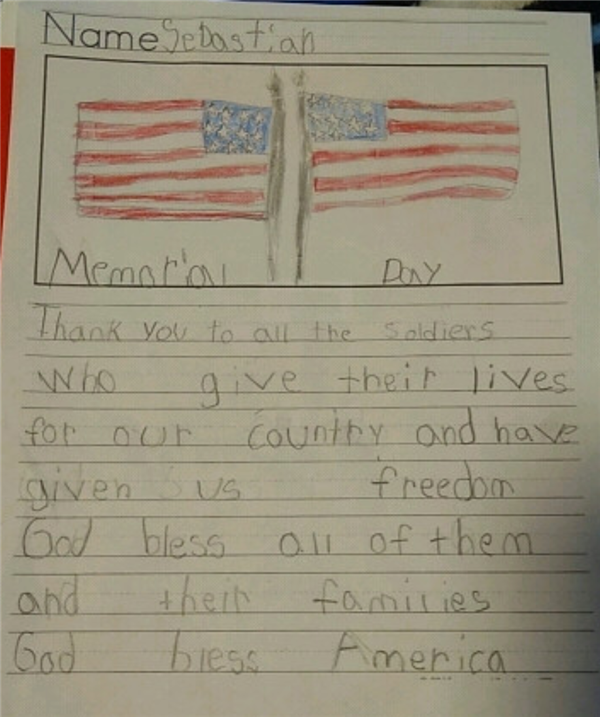 Name Sebastian
Memorial Day
Thank you to all the soldiers
Who give their lives
for our country and have
given us freedom
God bless all of them
and their families
God bless America